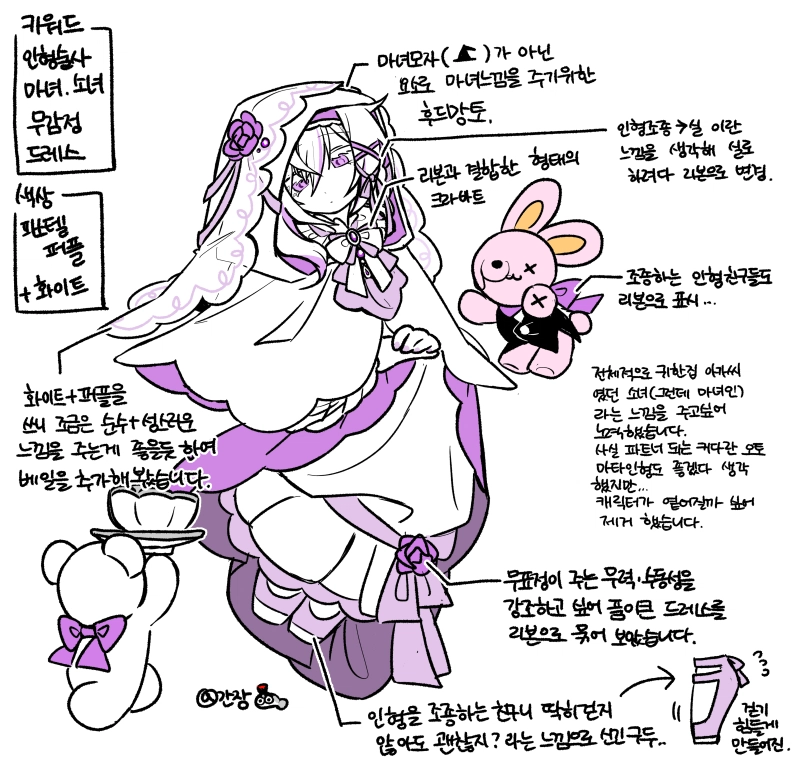 키워드
인형술사
마녀. 소녀
무감정
드레스
색상
파스텔
퍼플
+ 화이트
마녀모자( )가 아닌
요소로 마녀느낌을 주기위한
후드망토.
인형조종 → 실 이란
느낌을 생각해 실로
하려다 리본으로 변경.
리본과 결합한 형태의
크라바트
조종하는 인형친구들도
리본으로 표시...
화이트+퍼플을
쓰니 조금은 순수+성스러운
느낌을 주는게 좋을듯 하여
베일을 추가해 봤습니다.
전체적으로 귀한집 아가씨
였던 소녀(그런데 마녀인)
라는 느낌을 주고싶어
노력했습니다.
사실 파트너 되는 커다란 오토
마타인형도 좋겠다 생각
했지만...
캐릭터가 옅어질까 싶어
제거 했습니다.
무표정이 주는 무력·수동성을
강조하고 싶어 품이큰 드레스를
리본으로 묶어 보았습니다.
@간장
인형을 조종하는 친구니 딱히 걷지
않아도 괜찮지? 라는 느낌으로 신긴구두..
걷기
힘들게
만들어진.